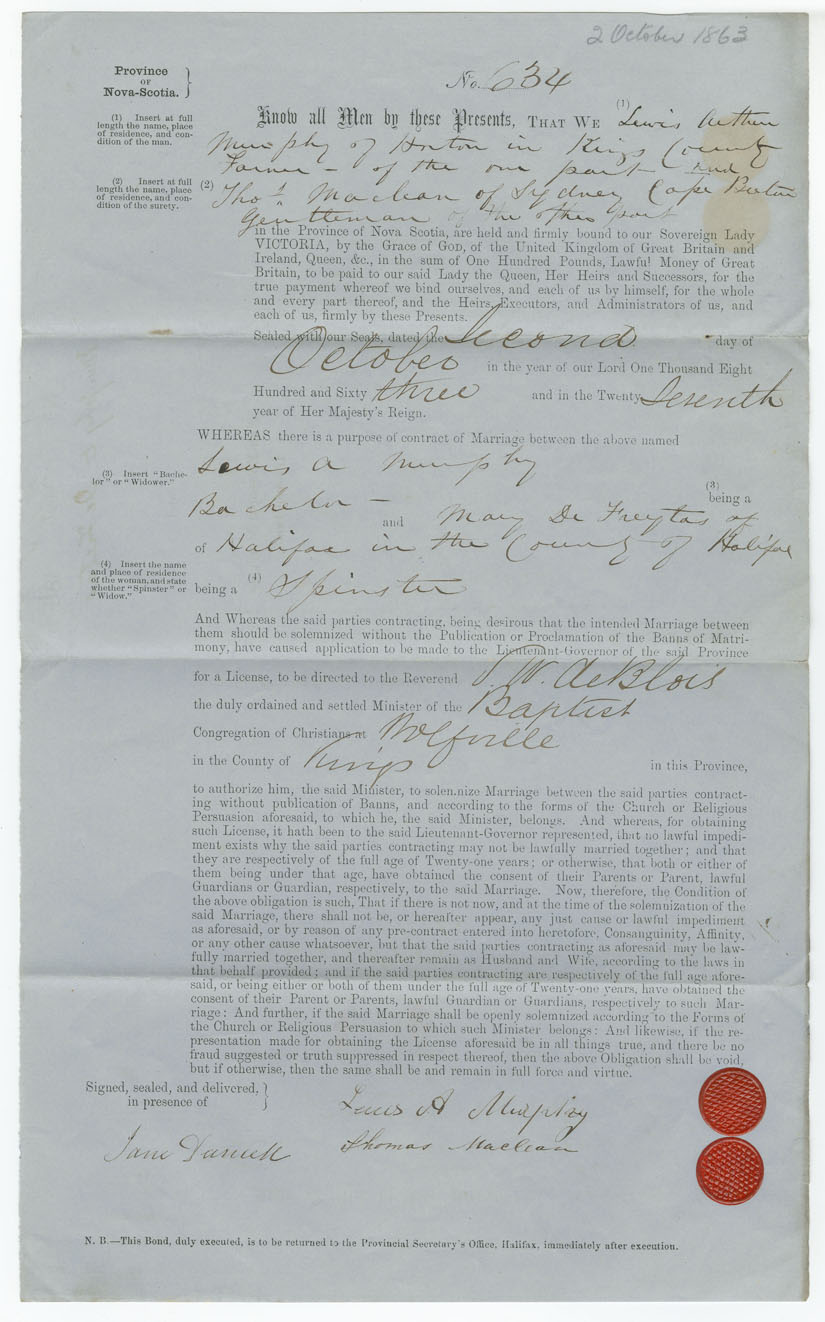 2 October 1863
Province
OF
Nova-Scotia.
No. 634
(1) Insert at full
length the name, place
of residence, and con-
dition of the man.
Know all Men by these Presents, THAT WE (1) Lewis Arthur
Murphy of Horton in Kings County
Farmer – of the one part and
(2) Insert at full
length the name, place
of residence, and con-
dition of the surety.
(2) Thos. Maclean of Sydney Cape Breton
Gentleman of the other part
in the Province of Nova Scotia, are held and firmly bound to our Sovereign Lady
VICTORIA, by the Grace of GOD, of the United Kingdom of Great Britain and
Ireland, Queen, &c., in the sum of One Hundred Pounds, Lawful Money of Great
Britain, to be paid to our said Lady the Queen, Her Heirs and Successors, for the
true payment whereof we bind ourselves, and each of us by himself, for the whole
and every part thereof, and the Heirs, Executors, and Administrators of us, and
each of us, firmly by these Presents.
Sealed with our Seals, dated the Second day of
October in the year of our Lord One Thousand Eight
Hundred and Sixty three and in the Twenty Seventh
year of Her Majesty's Reign.
WHEREAS there is a purpose of contract of Marriage between the above named
(3) Insert "Bache-
lor" or "Widower."
Lewis A Murphy
(3)
being a
Bachelor – and Mary De Freytas of
of Halifax in the County of Halifax
(4) Insert the name
and place of residence
of the woman, and state
whether "Spinster" or
"Widow."
being a (4) Spinster
And Whereas the said parties contracting, being desirous that the intended Marriage between
them should be solemnized without the Publication or Proclamation of the Banns of Matri-
mony, have caused application to be made to the Lieutenant-Governor of the said Province
for a License, to be directed to the Reverend W. DeBlois
the duly ordained and settled Minister of the Baptist
Congregation of Christians at Wolfville
in the County of Kings in this Province,
to authorize him, the said Minister, to solemnize Marriage between the said parties contract-
ing without publication of Banns, and according to the forms of the Church or Religious
Persuasion aforesaid, to which he, the said Minister, belongs. And whereas, for obtaining
such License, it hath been to the said Lieutenant-Governor represented, that no lawful impedi-
ment exists why the said parties contracting may not be lawfully married together; and that
they are respectively of the full age of Twenty-one years; or otherwise, that both or either of
them being under that age, have obtained the consent of their Parents or Parent, lawful
Guardians or Guardian, respectively, to the said Marriage. Now, therefore, the Condition of
the above obligation is such, That if there is not now, and at the time of the solemnization of the
said Marriage, there shall not be, or hereafter appear, any just cause or lawful impediment
as aforesaid, or by reason of any pre-contract entered into heretofore, Consanguinity, Affinity,
or any other cause whatsoever, but that the said parties contracting as aforesaid may be law-
fully married together, and thereafter remain as Husband and Wife, according to the laws in
that behalf provided; and if the said parties contracting are respectively of the full age afore-
said, or being either or both of them under the full age of Twenty-one years, have obtained the
consent of their Parent or Parents, lawful Guardian or Guardians, respectively to such Mar-
riage: And further, if the said Marriage shall be openly solemnized according to the Forms of
the Church or Religious Persuasion to which such Minister belongs: And likewise, if the re-
presentation made for obtaining the License aforesaid be in all things true, and there be no
fraud suggested or truth suppressed in respect thereof, then the above Obligation shall be void,
but if otherwise, then the same shall be and remain in full force and virtue.
Signed, sealed, and delivered,
in presence of
Lewis A Murphy
Jane
Thomas Maclean
N. B.—This Bond, duly executed, is to be returned to the Provincial Secretary's Office, Halifax, immediately after execution.